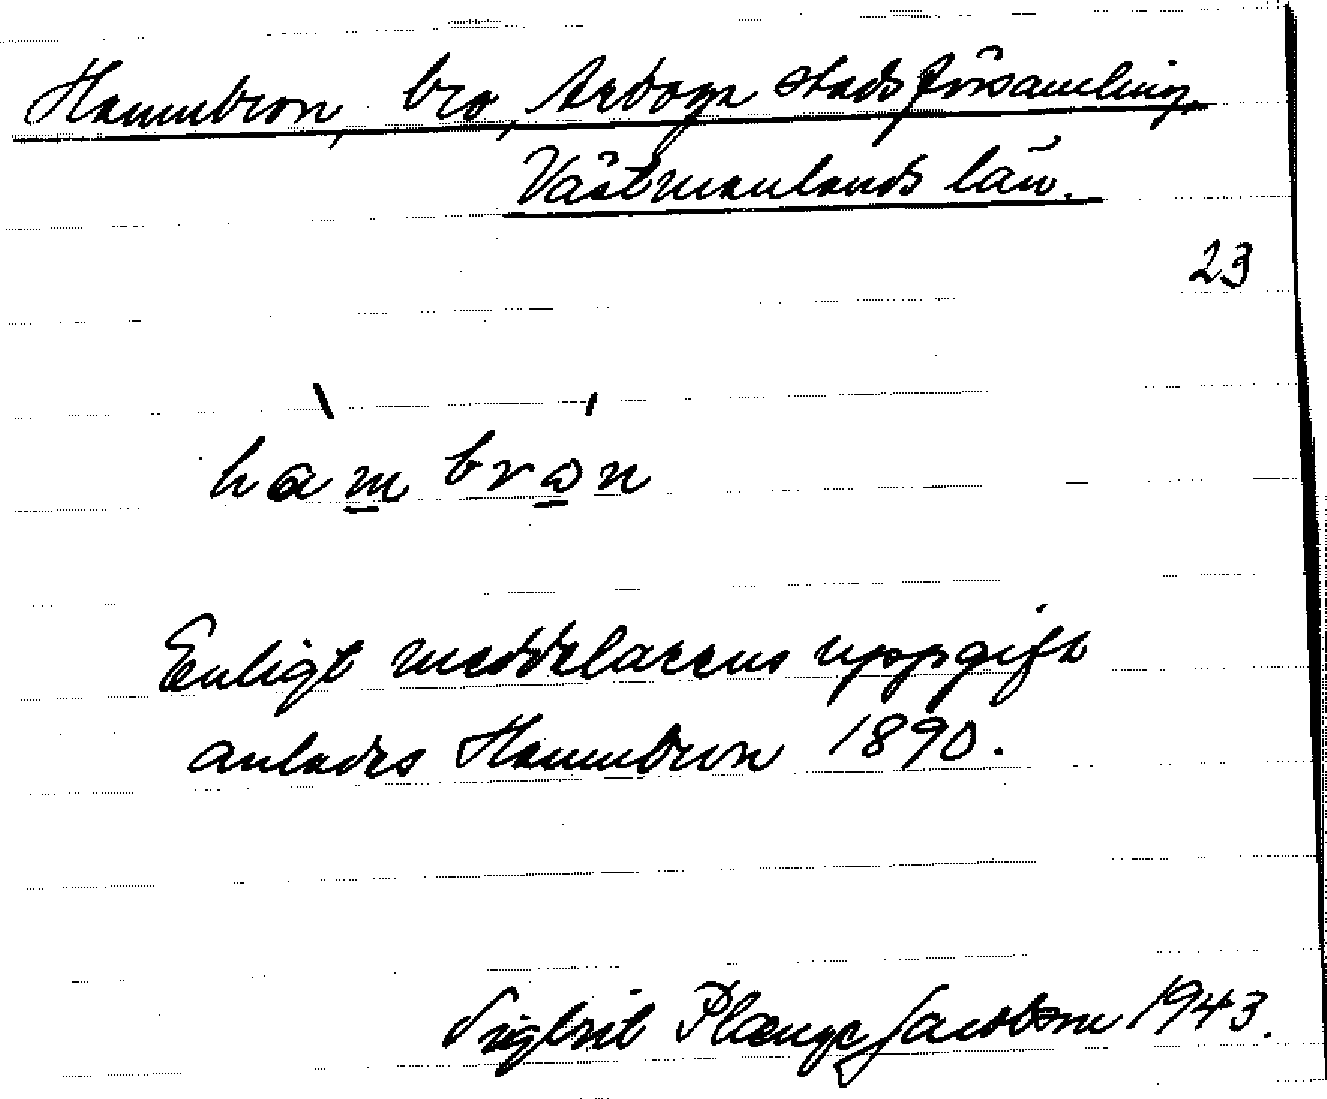 Hamnbron, bro, Arboga stadsförsamling,
Västmanlands län.
23
hàmbrón
Enligt meddelarens uppgift
anlades Hamnbron 1890.
Sigbrit Plænge Jacobson 1943.